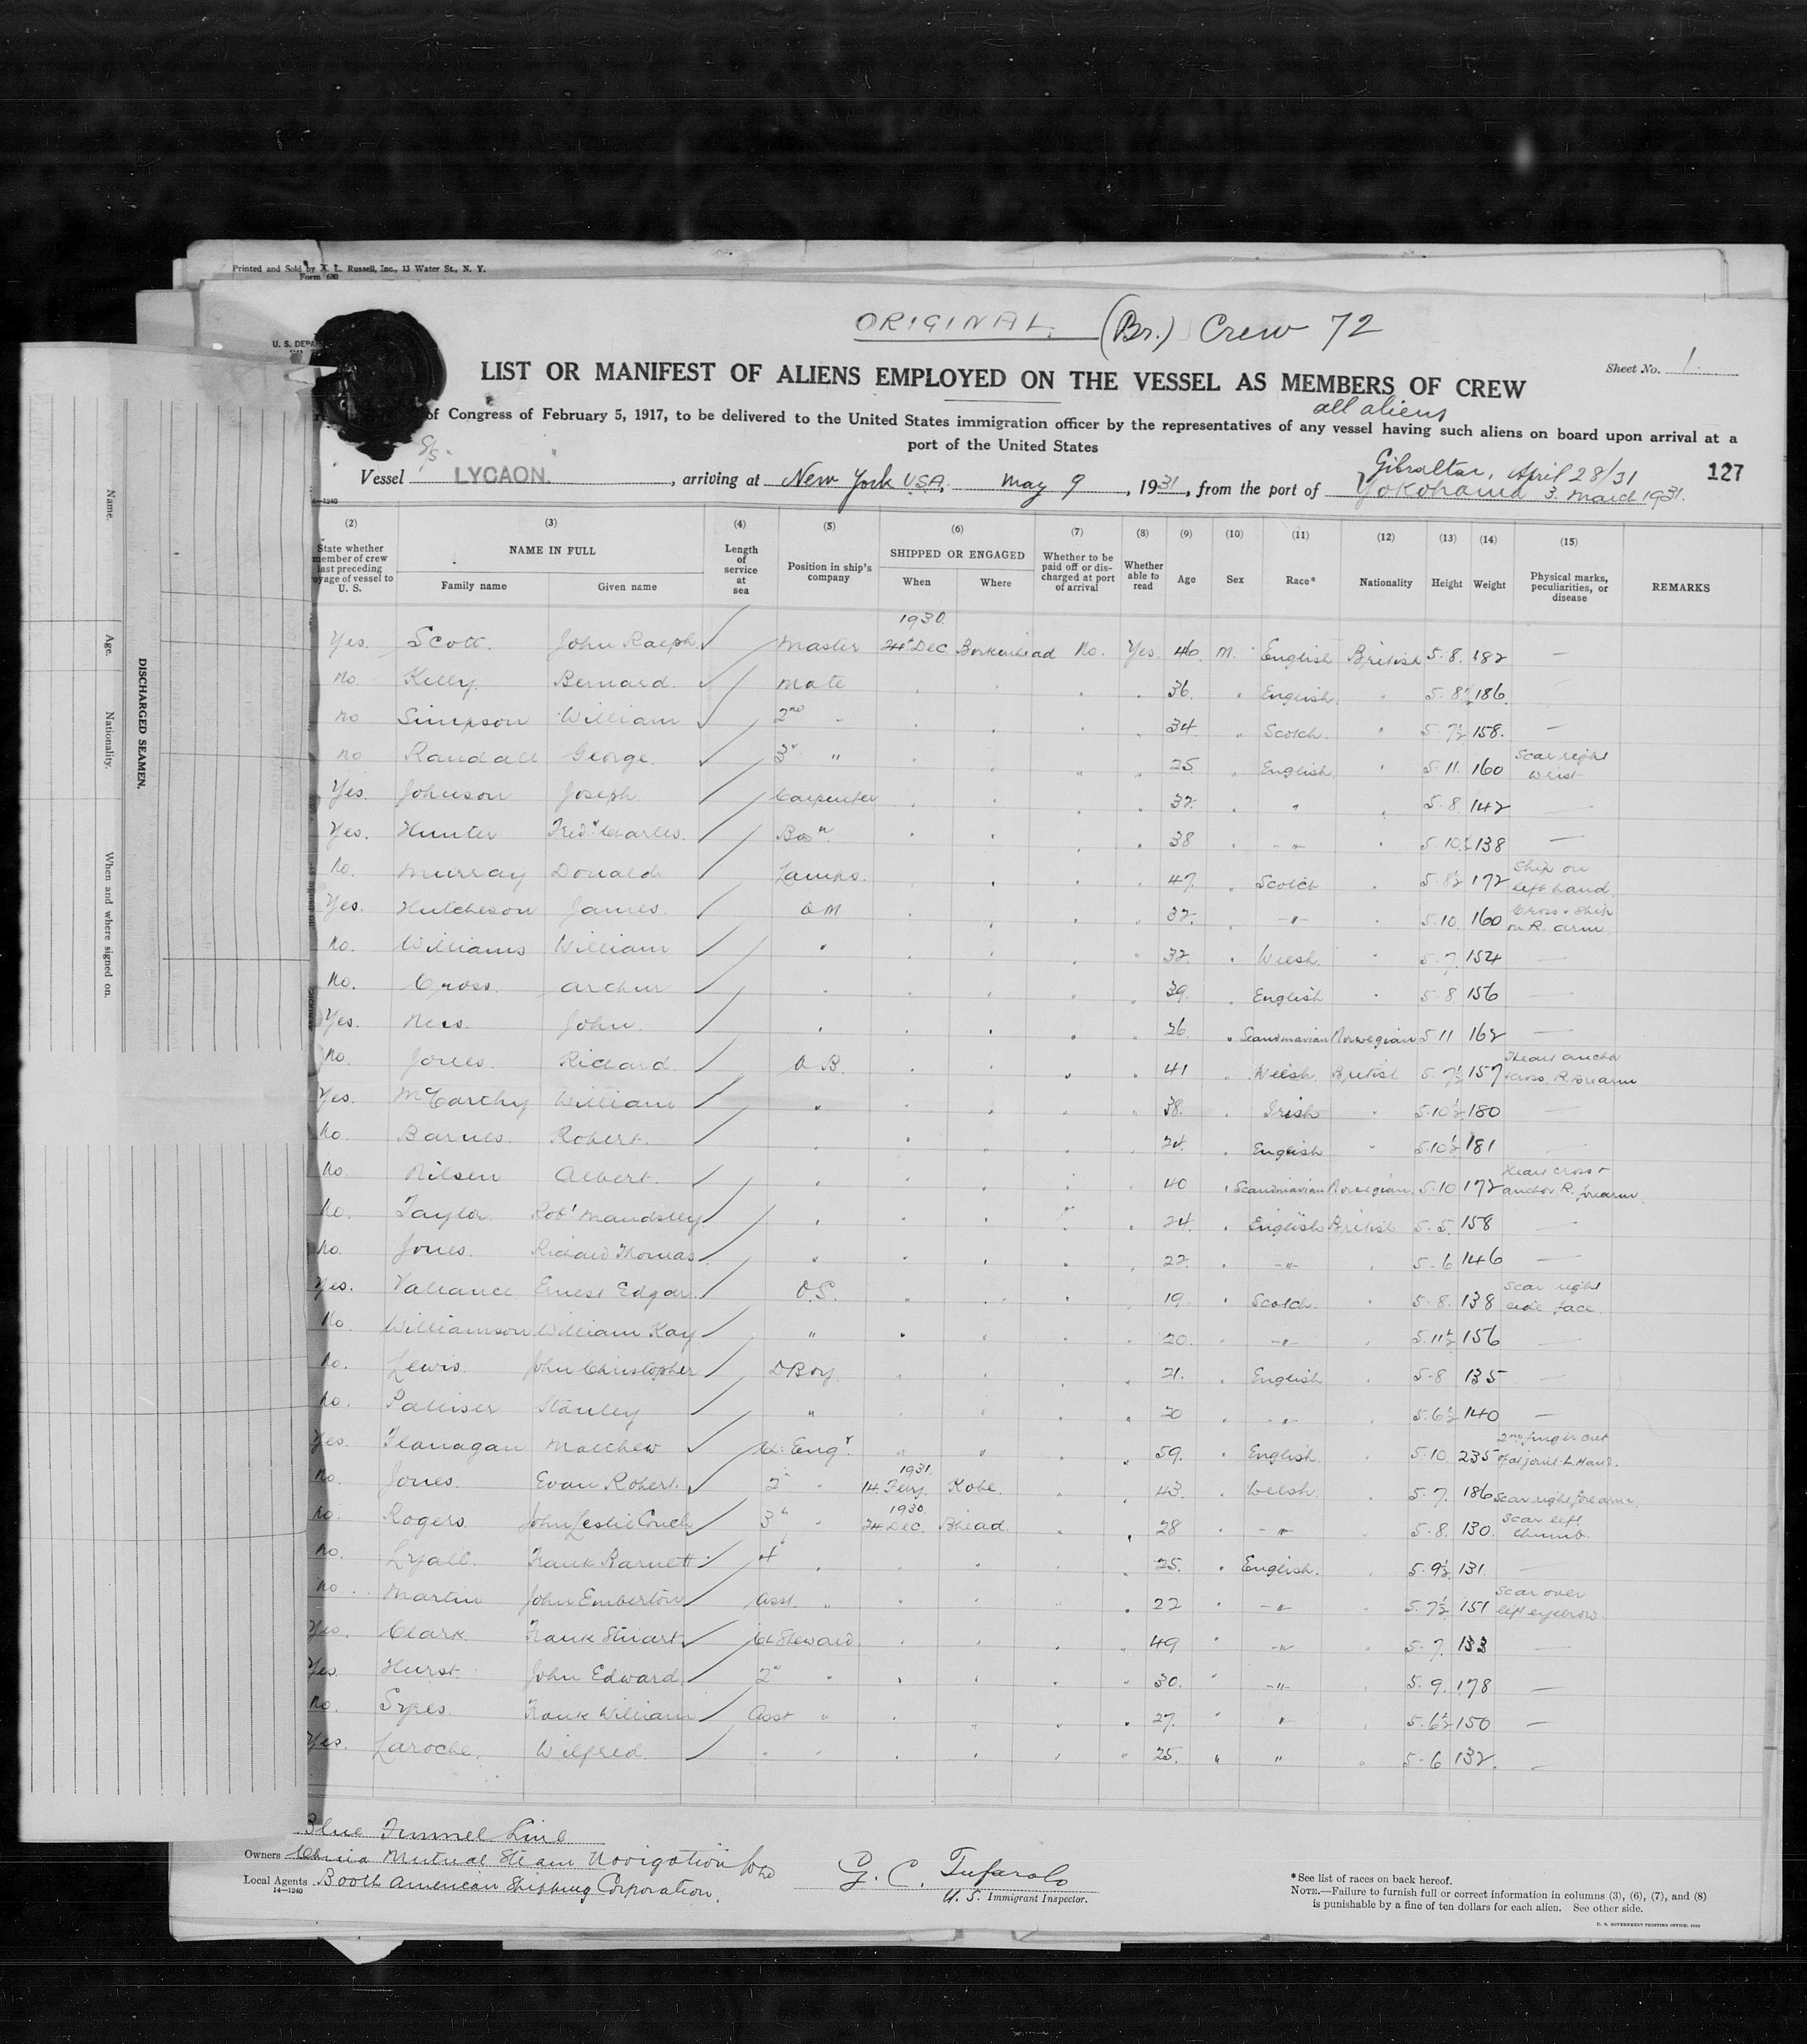 Printed and Sold by A. L. Russell, Inc., 13 Water St., N. Y.
Form 680
ORIGINAL. (Br.) Crew 72
U. S. DEPA
Sheet No. 1.
LIST OR MANIFEST OF ALIENS EMPLOYED ON THE VESSEL AS MEMBERS OF CREW
all aliens
of Congress of February 5, 1917, to be delivered to the United States immigration officer by the representatives of any vessel having such aliens on board upon arrival at a
port of the United States
Gibraltar, April 28/31
127
Vessel S/S. LYCAON. , arriving at New York USA, May 9 , 1931 , from the port of Yokohama 3. March 1931.
14—1240
(2) (3) (4) (5) (6) (7) (8) (9) (10) (11) (12) (13) (14) (15)
State whether member of crew last preceding voyage of vessel to U. S.
NAME IN FULL Family name Given name
Length of service at sea
Position in ship's company
SHIPPED OR ENGAGED When Where
Whether to be paid off or discharged at port of arrival
Whether able to read
Age Sex Race* Nationality Height Weight
Physical marks, peculiarities, or disease
REMARKS
1930.
Yes. Scott. John Ralph. Master 24 Dec Birkenhead No. Yes. 46. M. English British 5.8. 182 —
No. Kelly. Bernard. Mate 36. " English. " 5.8½ 186. —
No Simpson William 2nd " 34. " Scotch. " 5.7½ 158. —
No Randall George. 3r " 25. " English. " 5.11. 160 Scar right wrist
Yes. Johnson Joseph. Carpenter 32. " " " 5.8. 142 —
Yes. Hunter Fredk Charles. Bosn. 38 " -"- " 5.10½ 138 —
No. Murray Donald Lamps. 47. " Scotch " 5.8½ 172 Ship on left hand.
Yes. Hutcheson James. Q M 32. " -"- " 5.10. 160 Cross & Ship on R. arm.
No. Williams William " 32. " Welsh. " 5.7. 154 —
No. Cross. Arthur " 39. " English " 5.8. 156 —
Yes. Ness. John. " 26 " Scandinavian Norwegian 5.11 162 —
No. Jones. Richard. A B. 41 " Welsh. British 5.7½ 157 Heart anchor & cross. R. Forearm
Yes. McCarthy William " 38. " Irish " 5.10½ 180 —
No. Barnes. Robert. " 24. " English " 5.10½ 181 —
No. Nilsen Albert. " 40 " Scandinavian Norwegian. 5.10 172 Heart cross & anchor R. forearm
No. Taylor Robt Maudsley " 24. " English British 5.5. 158 —
No. Jones. Richard Thomas. " 22. " -"- " 5.6 146 —
Yes. Valiance Ernest Edgar. O.S. 19. " Scotch. " 5.8. 138 Scar right side face.
No. Williamson William Kay " 20. " -"- " 5.11½ 156 —
No. Lewis. John Christopher D Boy. 21. " English " 5.8 135 —
No. Palliser Stanley " 20 " -"- " 5.6½ 140 —
Yes. Flanagan Matthew Ch. Engr. 59. " English. " 5.10 235 2nd finger cut off at joint L Hand.
1931.
No. Jones. Evan Robert. 2" " 14. Feby. Kobe. 43. " Welsh. " 5.7. 186 Scar right forearm.
1930.
No. Rogers John Leslie Couch 3" " 24 Dec. Bhead. 28 " -"- " 5.8. 130. Scar left thumb.
No. Lyall. Frank Barnett 4" 25. " English. " 5.9½ 131. —
No. Martin John Emberton Asst. " 22 " -"- " 5.7½ 151 Scar over left eyebrow.
Yes. Clark. Frank Stuart Ch Steward. 49 " -"- " 5.7. 133 —
Yes. Hurst. John Edward. 2" " 30. " -"- " 5.9. 178 —
No. Sykes. Frank William Asst " 27. " " " 5.6½ 150 —
Yes. Laroche. Wilfred. " " 25. " " " 5.6 132. —
Name. Age. Nationality. When and where signed on.
DISCHARGED SEAMEN.
Blue Funnel Line
Owners China Mutual Steam Navigation Co Ltd
Local Agents Booth American Shipping Corporation.
14—1240
G. C. Tufarolo
U. S. Immigrant Inspector.
*See list of races on back hereof.
NOTE.—Failure to furnish full or correct information in columns (3), (6), (7), and (8)
is punishable by a fine of ten dollars for each alien. See other side.